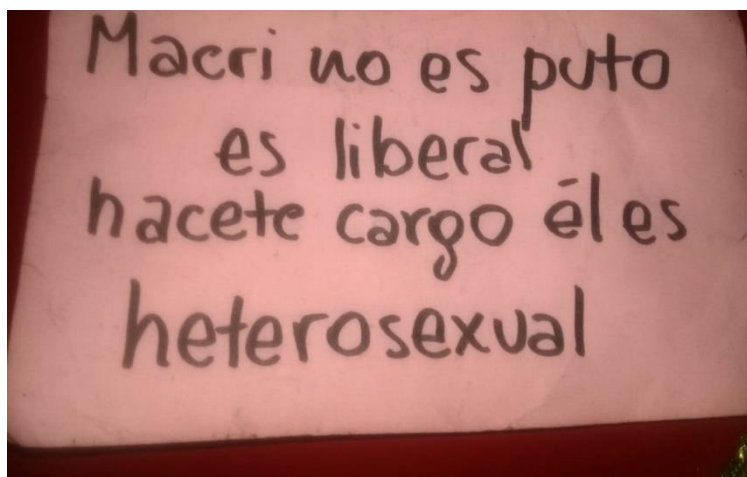 Macri no es puto
es liberal
hacete cargo él es
heterosexual